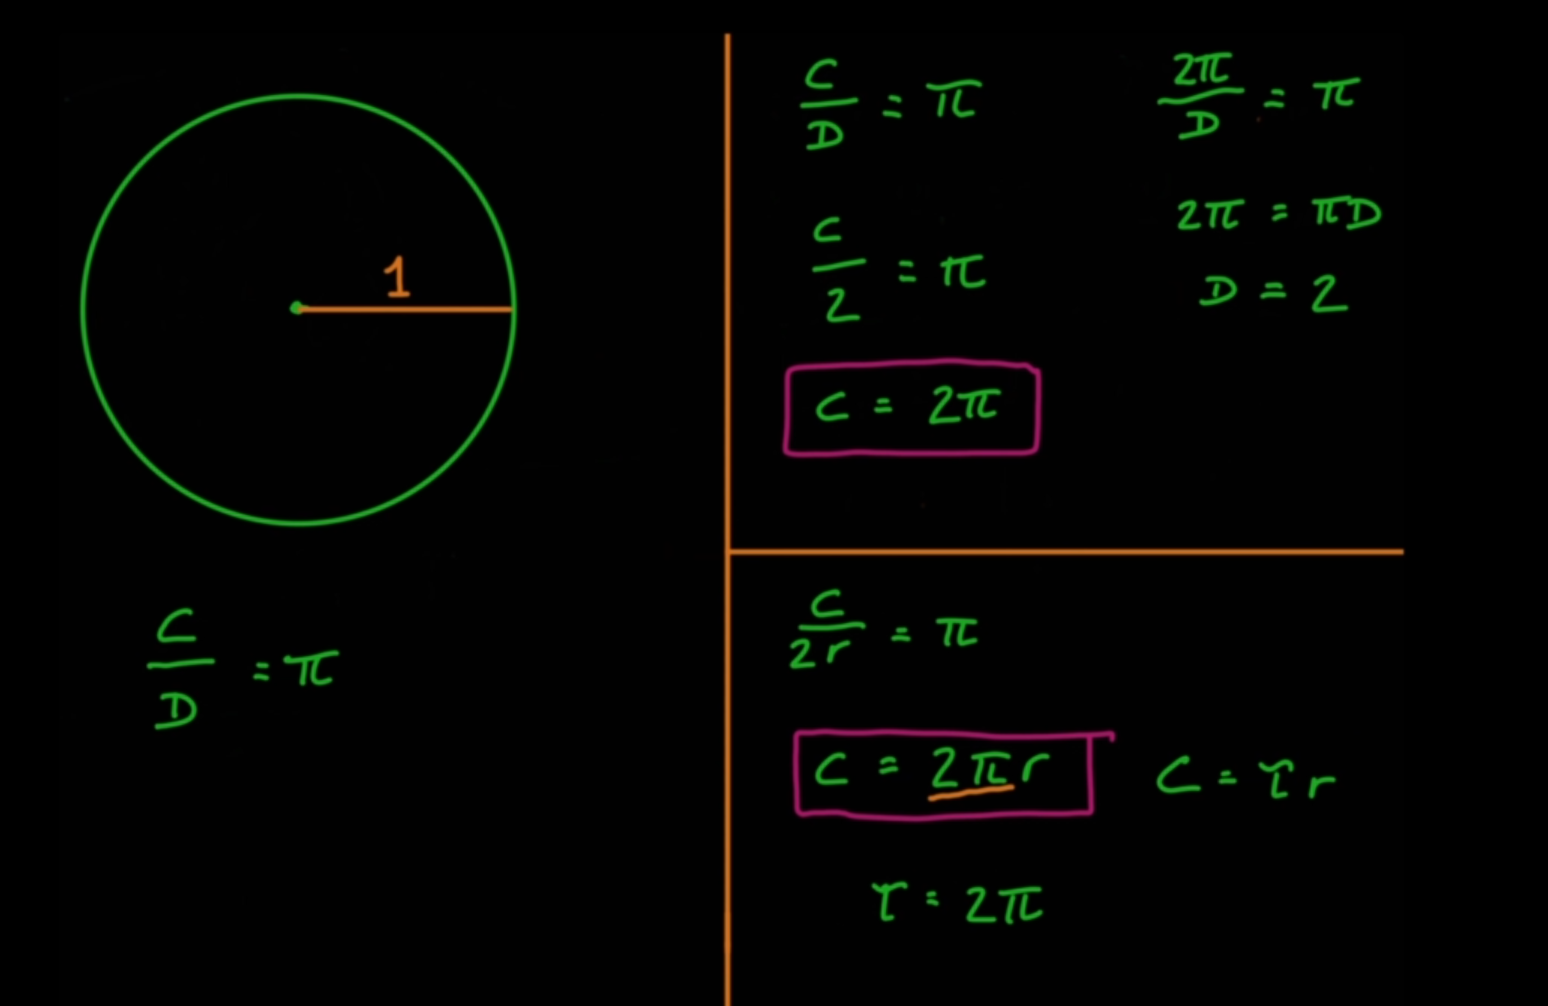 1
C/D = π
C/D = π
C/2 = π
C = 2π
2π/D = π
2π = πD
D = 2
C/2r = π
C = 2πr
C = τr
τ = 2π